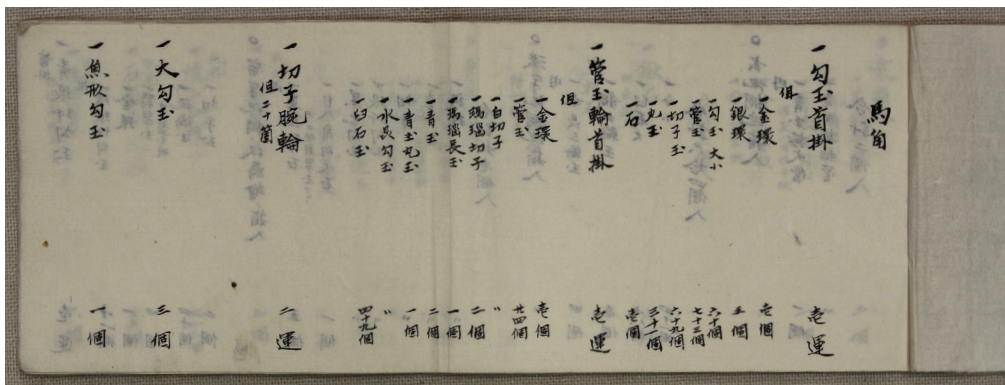 馬角
一勾玉首掛 壱運
但
一金環 壱個
一銀環 五個
一勾玉 大小 六十個
一管玉 七十三個
一切子玉 六十九個
一丸玉 三十個
一石 壱個
一管玉輪首掛 壱運
但
一金環 壱個
一管玉 廿四個
一白切子 〃
一瑪瑙切子 二個
一瑪瑙長玉 一個
一青玉 二個
一青玉丸玉 一個
一水晶勾玉 〃
一臼石玉 四十九個
一切子腕輪 二運
但二十箇
一大勾玉 三個
一魚形勾玉 一個